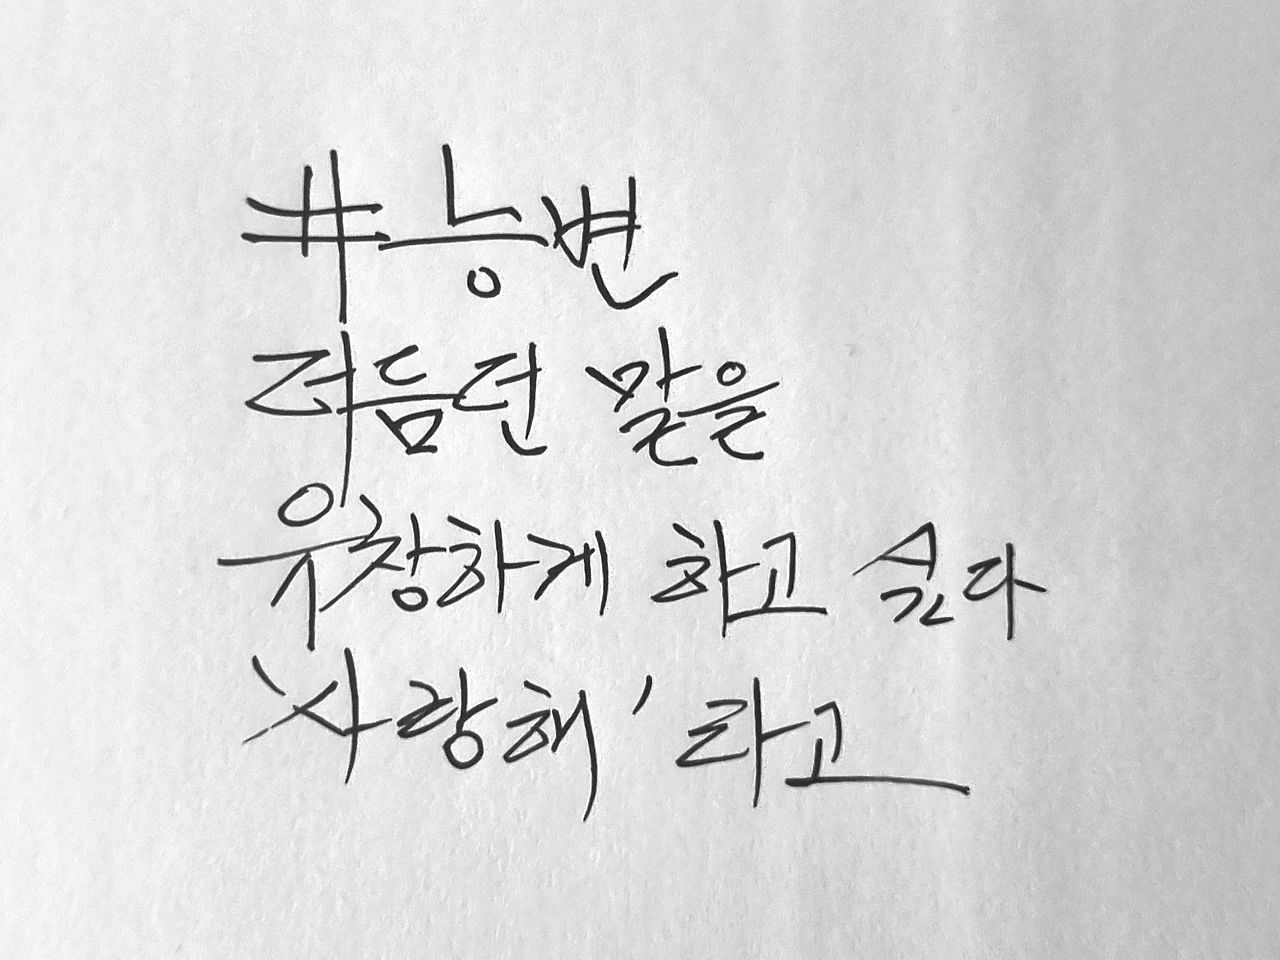 #능변
더듬던 말을
유창하게 하고 싶다
'사랑해'라고